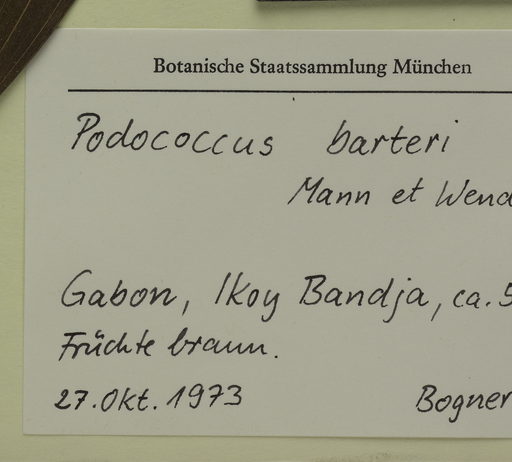 Botanische Staatssammlung München
Podococcus barteri
Mann et Wend
Gabon, Ikoy Bandja, ca. 5
Früchte braun.
27. Okt. 1973 Bogner